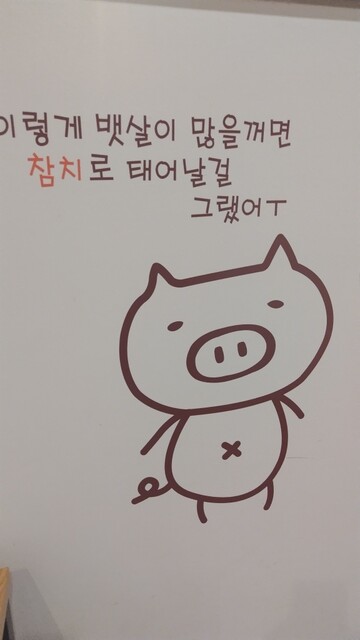 이렇게 뱃살이 많을꺼면
참치로 태어날걸
그랬어ㅜ